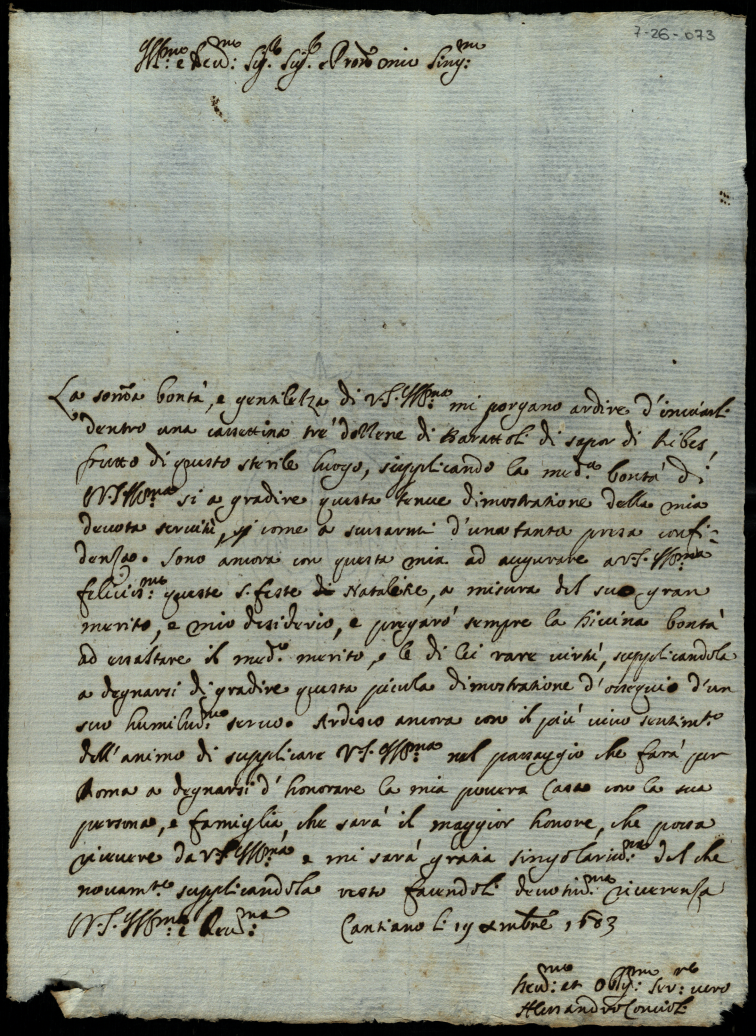 7-26-073
Ill.mo e Rev.mo Sig.r Sig.r e Pron mio Sing.mo
La somma bontà, e gentilezza di V.S. Ill.ma mi porgano ardire d'inviarli
dentro una cassettina trè dozzene di Barattoli di sapor di Ribes,
frutto di questo sterile luogo, supplicando la med.a bontà di
V.S. Ill.ma si a gradire questa tenue dimostratione della mia
devota servitù, si come a scusarmi d'una tanta presa confi=
denza. Sono ancora con questa mia ad augurare a V.S. Ill.ma
felicis.me queste S. feste di Natale, a misura del suo gran
merito, e mio desiderio, e pregarò sempre la Divina bontà
ad essaltare il med.o merito, e le di lei rare virtù, supplicandola
a degnarsi di gradire questa picola dimostratione d'ossequio d'un
suo humiliss.mo servo. Ardisco ancora con il più vivo sentim.to
dell'animo di supplicare V.S. Ill.ma nel passaggio che farà per
Roma a degnarsi d'honorare la mia povera Casa con la sua
persona, e famiglia, che sarà il maggior honore, che possa
ricevere da V.S. Ill.ma, e mi sarà gratia singolariss.ma del che
novam.te supplicandola resto facendoli devotiss.ma riverenza
V.S. Ill.ma e Rev.ma Cantiano li 19 Xmbre 1683
Dev.mo et Obblig.mo Ser.re vero
Alessandro Concioli